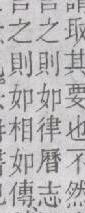 取其要也不然
言之則如律曆志
言之則如相如傳